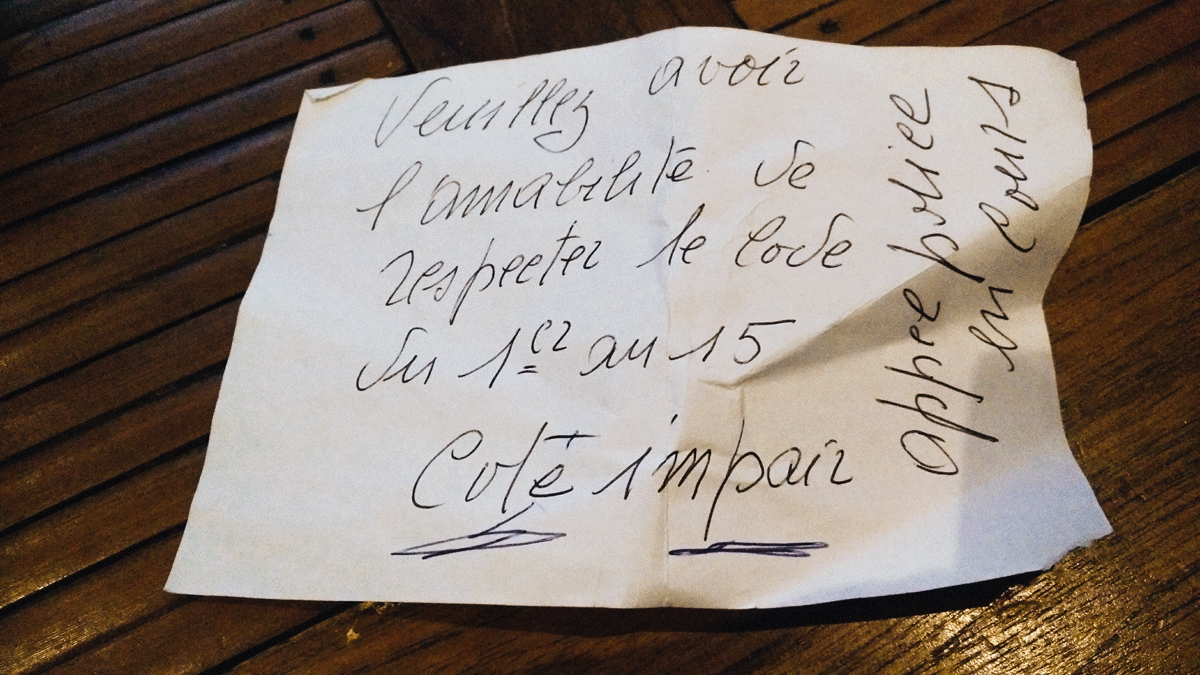 Veuillez avoir
l'amabilité de
respecter le Code
du 1er au 15
Coté impair
appee police
en cours